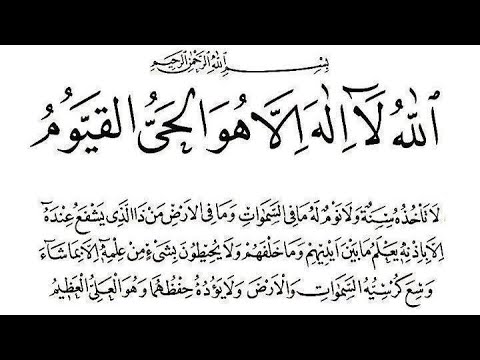 بِسْمِ اللهِ الرَّحْمٰنِ الرَّحِيمِ
اَللهُ لَآ اِلٰهَ اِلَّا هُوَ الْحَيُّ الْقَيُّومُ
لَا تَأْخُذُهُ سِنَةٌ وَلَا نَوْمٌ لَهُ مَا فِي السَّمٰوَاتِ وَمَا فِي الْاَرْضِ مَنْ ذَا الَّذِي يَشْفَعُ عِنْدَهُٓ
اِلَّا بِاِذْنِهٖ يَعْلَمُ مَا بَيْنَ اَيْدِيهِمْ وَمَا خَلْفَهُمْ وَلَا يُحِيطُونَ بِشَيْءٍ مِنْ عِلْمِهٖٓ اِلَّا بِمَا شَآءَ
وَسِعَ كُرْسِيُّهُ السَّمٰوَاتِ وَالْاَرْضَ وَلَا يَؤُدُهُ حِفْظُهُمَا وَهُوَ الْعَلِيُّ الْعَظِيمُ